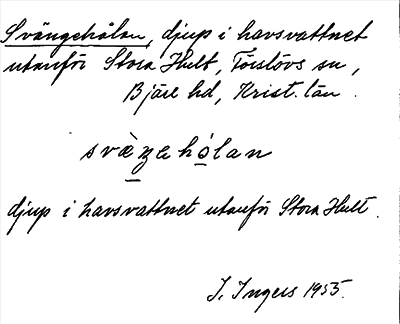 Svängehålan, djup i havsvattnet
utanför Stora Hult, Förslövs sn,
Bjäre hd, Krist. län.
svæ̀ŋehålan
djup i havsvattnet utanför Stora Hult.
I. Ingers 1955.